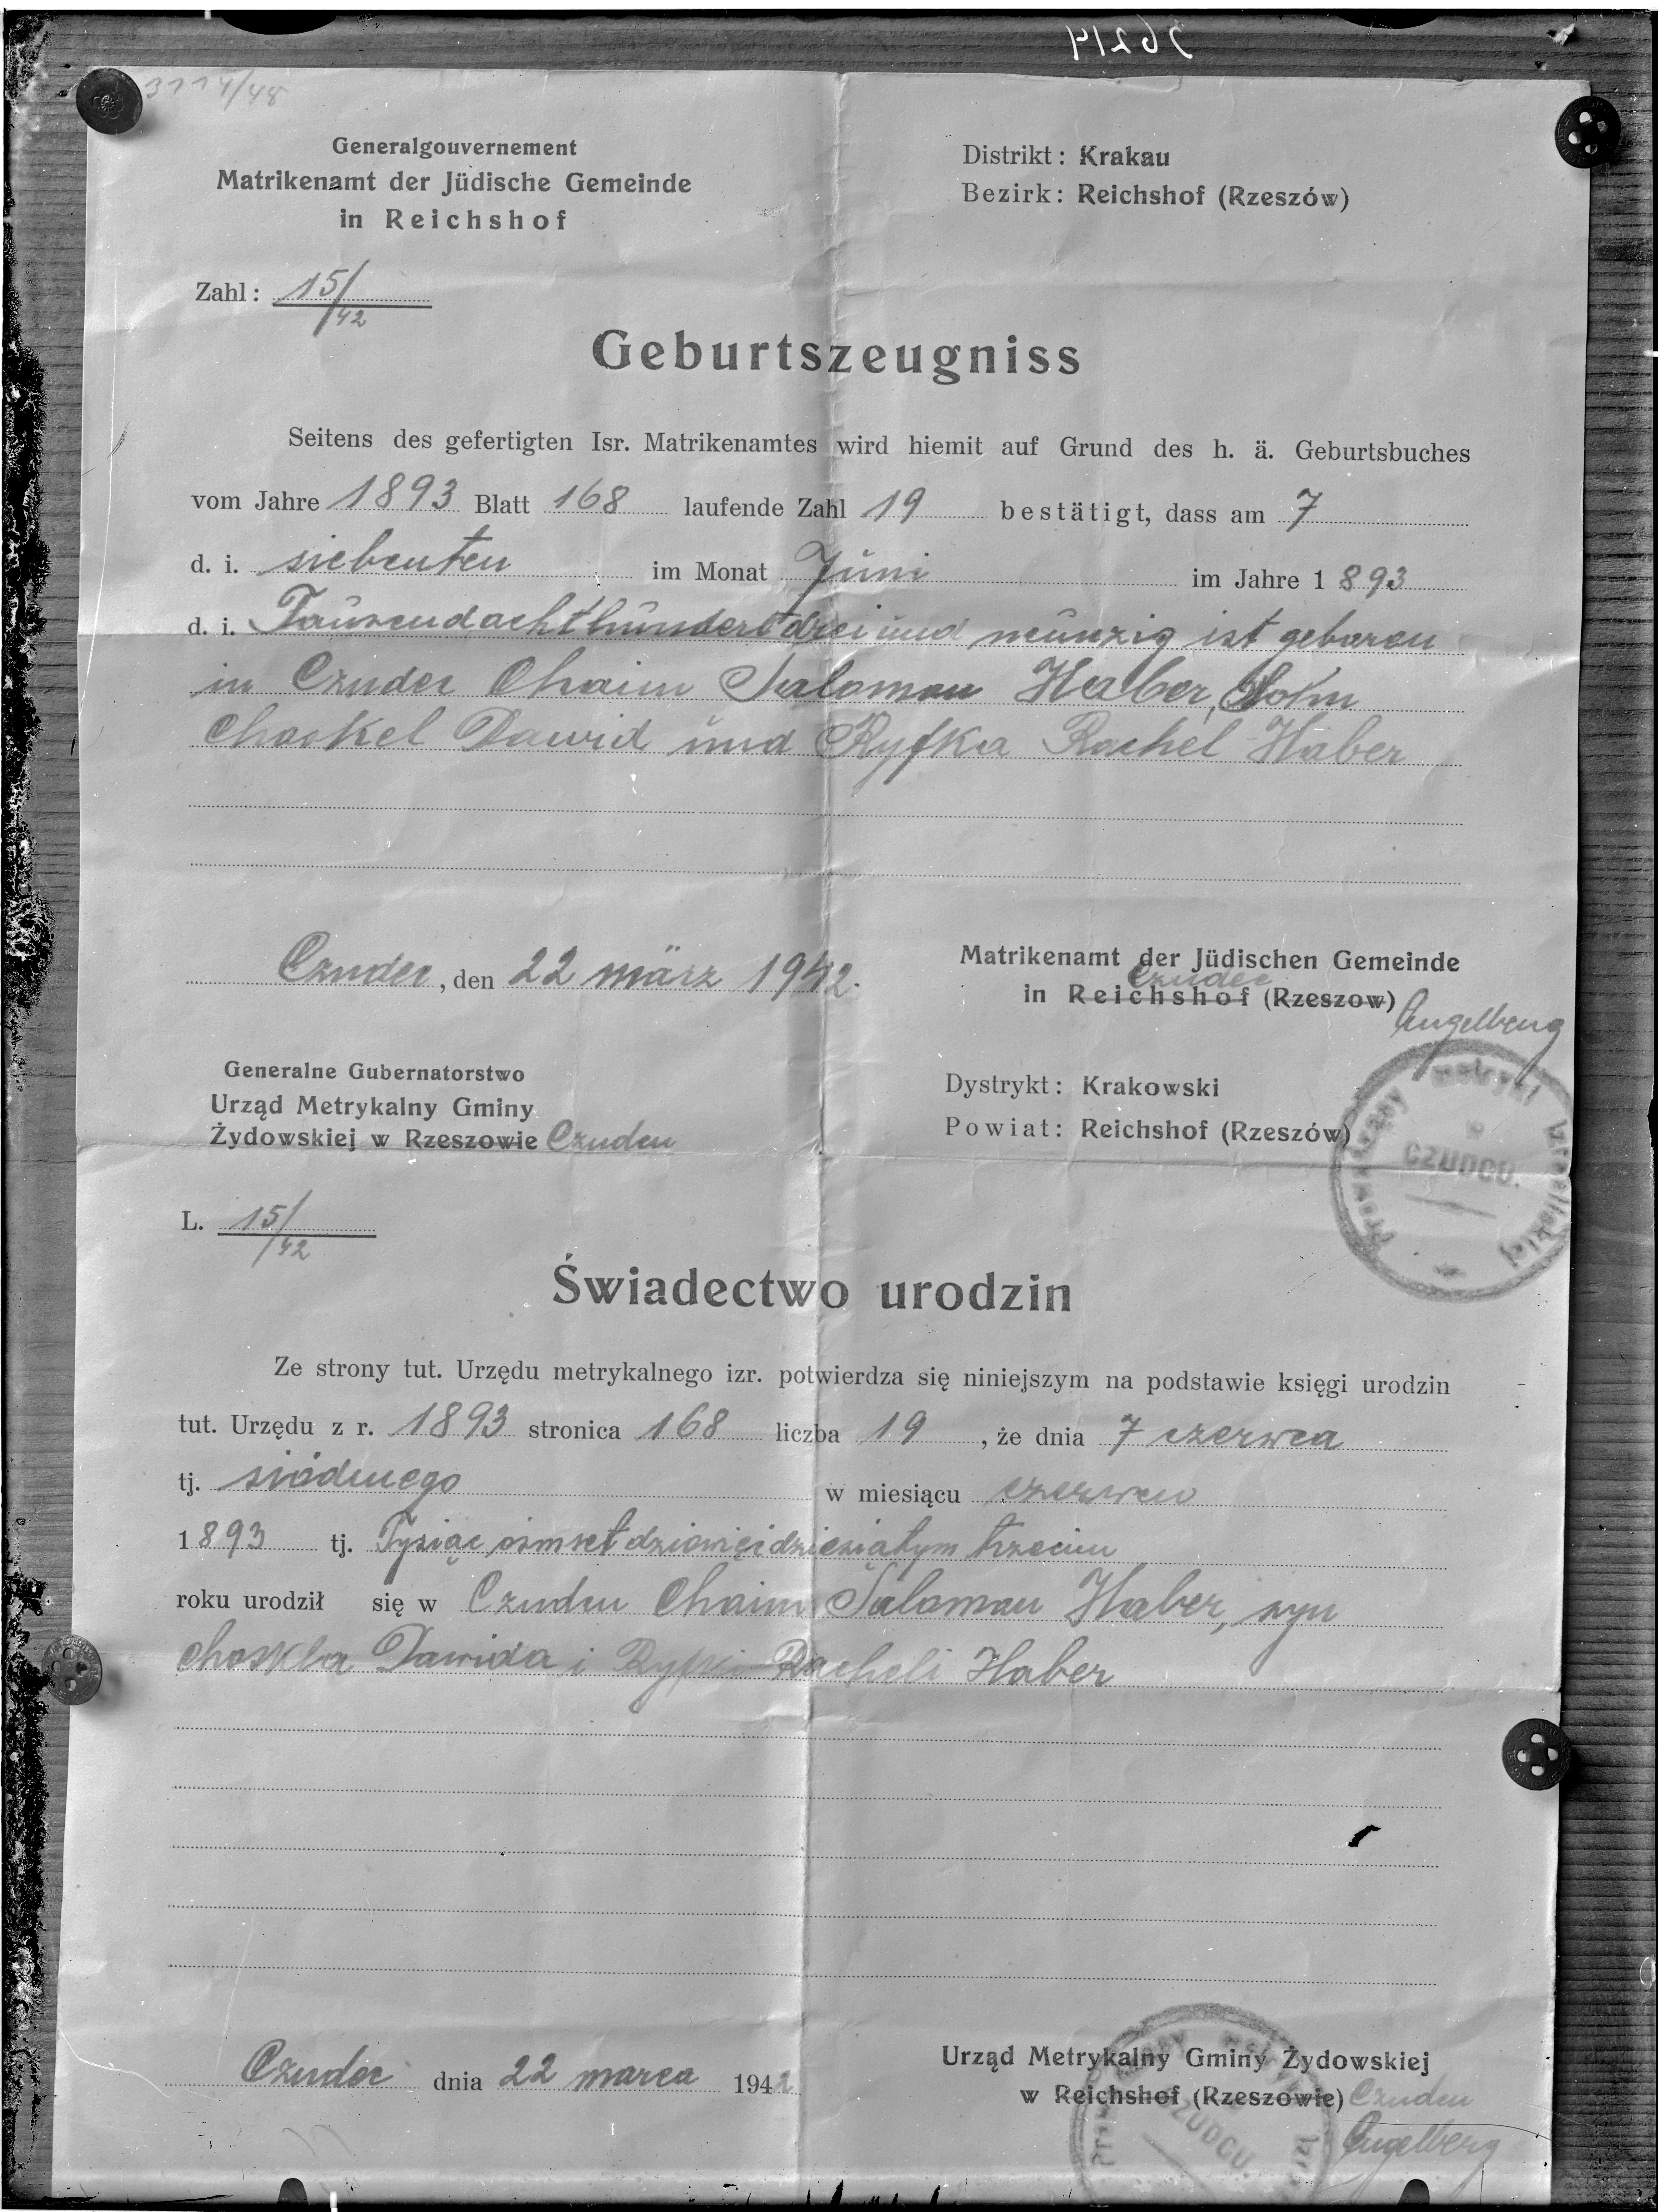 36214
3114/48
Generalgouvernement
Matrikenamt der Jüdische Gemeinde
in Reichshof
Distrikt: Krakau
Bezirk: Reichshof (Rzeszów)
Zahl: 15/42
Geburtszeugniss
Seitens des gefertigten Isr. Matrikenamtes wird hiemit auf Grund des h. ä. Geburtsbuches
vom Jahre 1893 Blatt 168 laufende Zahl 19 bestätigt, dass am 7
d. i. siebenten im Monat Juni im Jahre 1893
d. i. Tausendachthundertdrei und neunzig ist geboren
in Czudec Chaim Salomon Haber, Sohn
Chaskel Dawid und Ryfka Rachel Haber
Czudec, den 22 märz 1942.
Matrikenamt der Jüdischen Gemeinde
Czudec
in Reichshof (Rzeszow)
Engelberg
Generalne Gubernatorstwo
Urząd Metrykalny Gminy
Żydowskiej w Rzeszowie Czudcu
Dystrykt: Krakowski
Powiat: Reichshof (Rzeszów)
Prowadzący metryki izraelickiej
w
CZUDCU.
L. 15/42
Świadectwo urodzin
Ze strony tut. Urzędu metrykalnego izr. potwierdza się niniejszym na podstawie księgi urodzin
tut. Urzędu z r. 1893 stronica 168 liczba 19, że dnia 7 czerwca
tj. siódmego w miesiącu czerwcu
1893 tj. Tysiąc ósmset dziewięćdziesiątym trzecim
roku urodził się w Czudcu Chaim Salomon Haber, syn
Chaskla Dawida i Ryfki Racheli Haber
Czudec dnia 22 marca 1942
Urząd Metrykalny Gminy Żydowskiej
w Reichshof (Rzeszowie) Czudcu
Engelberg
CZUDCU.